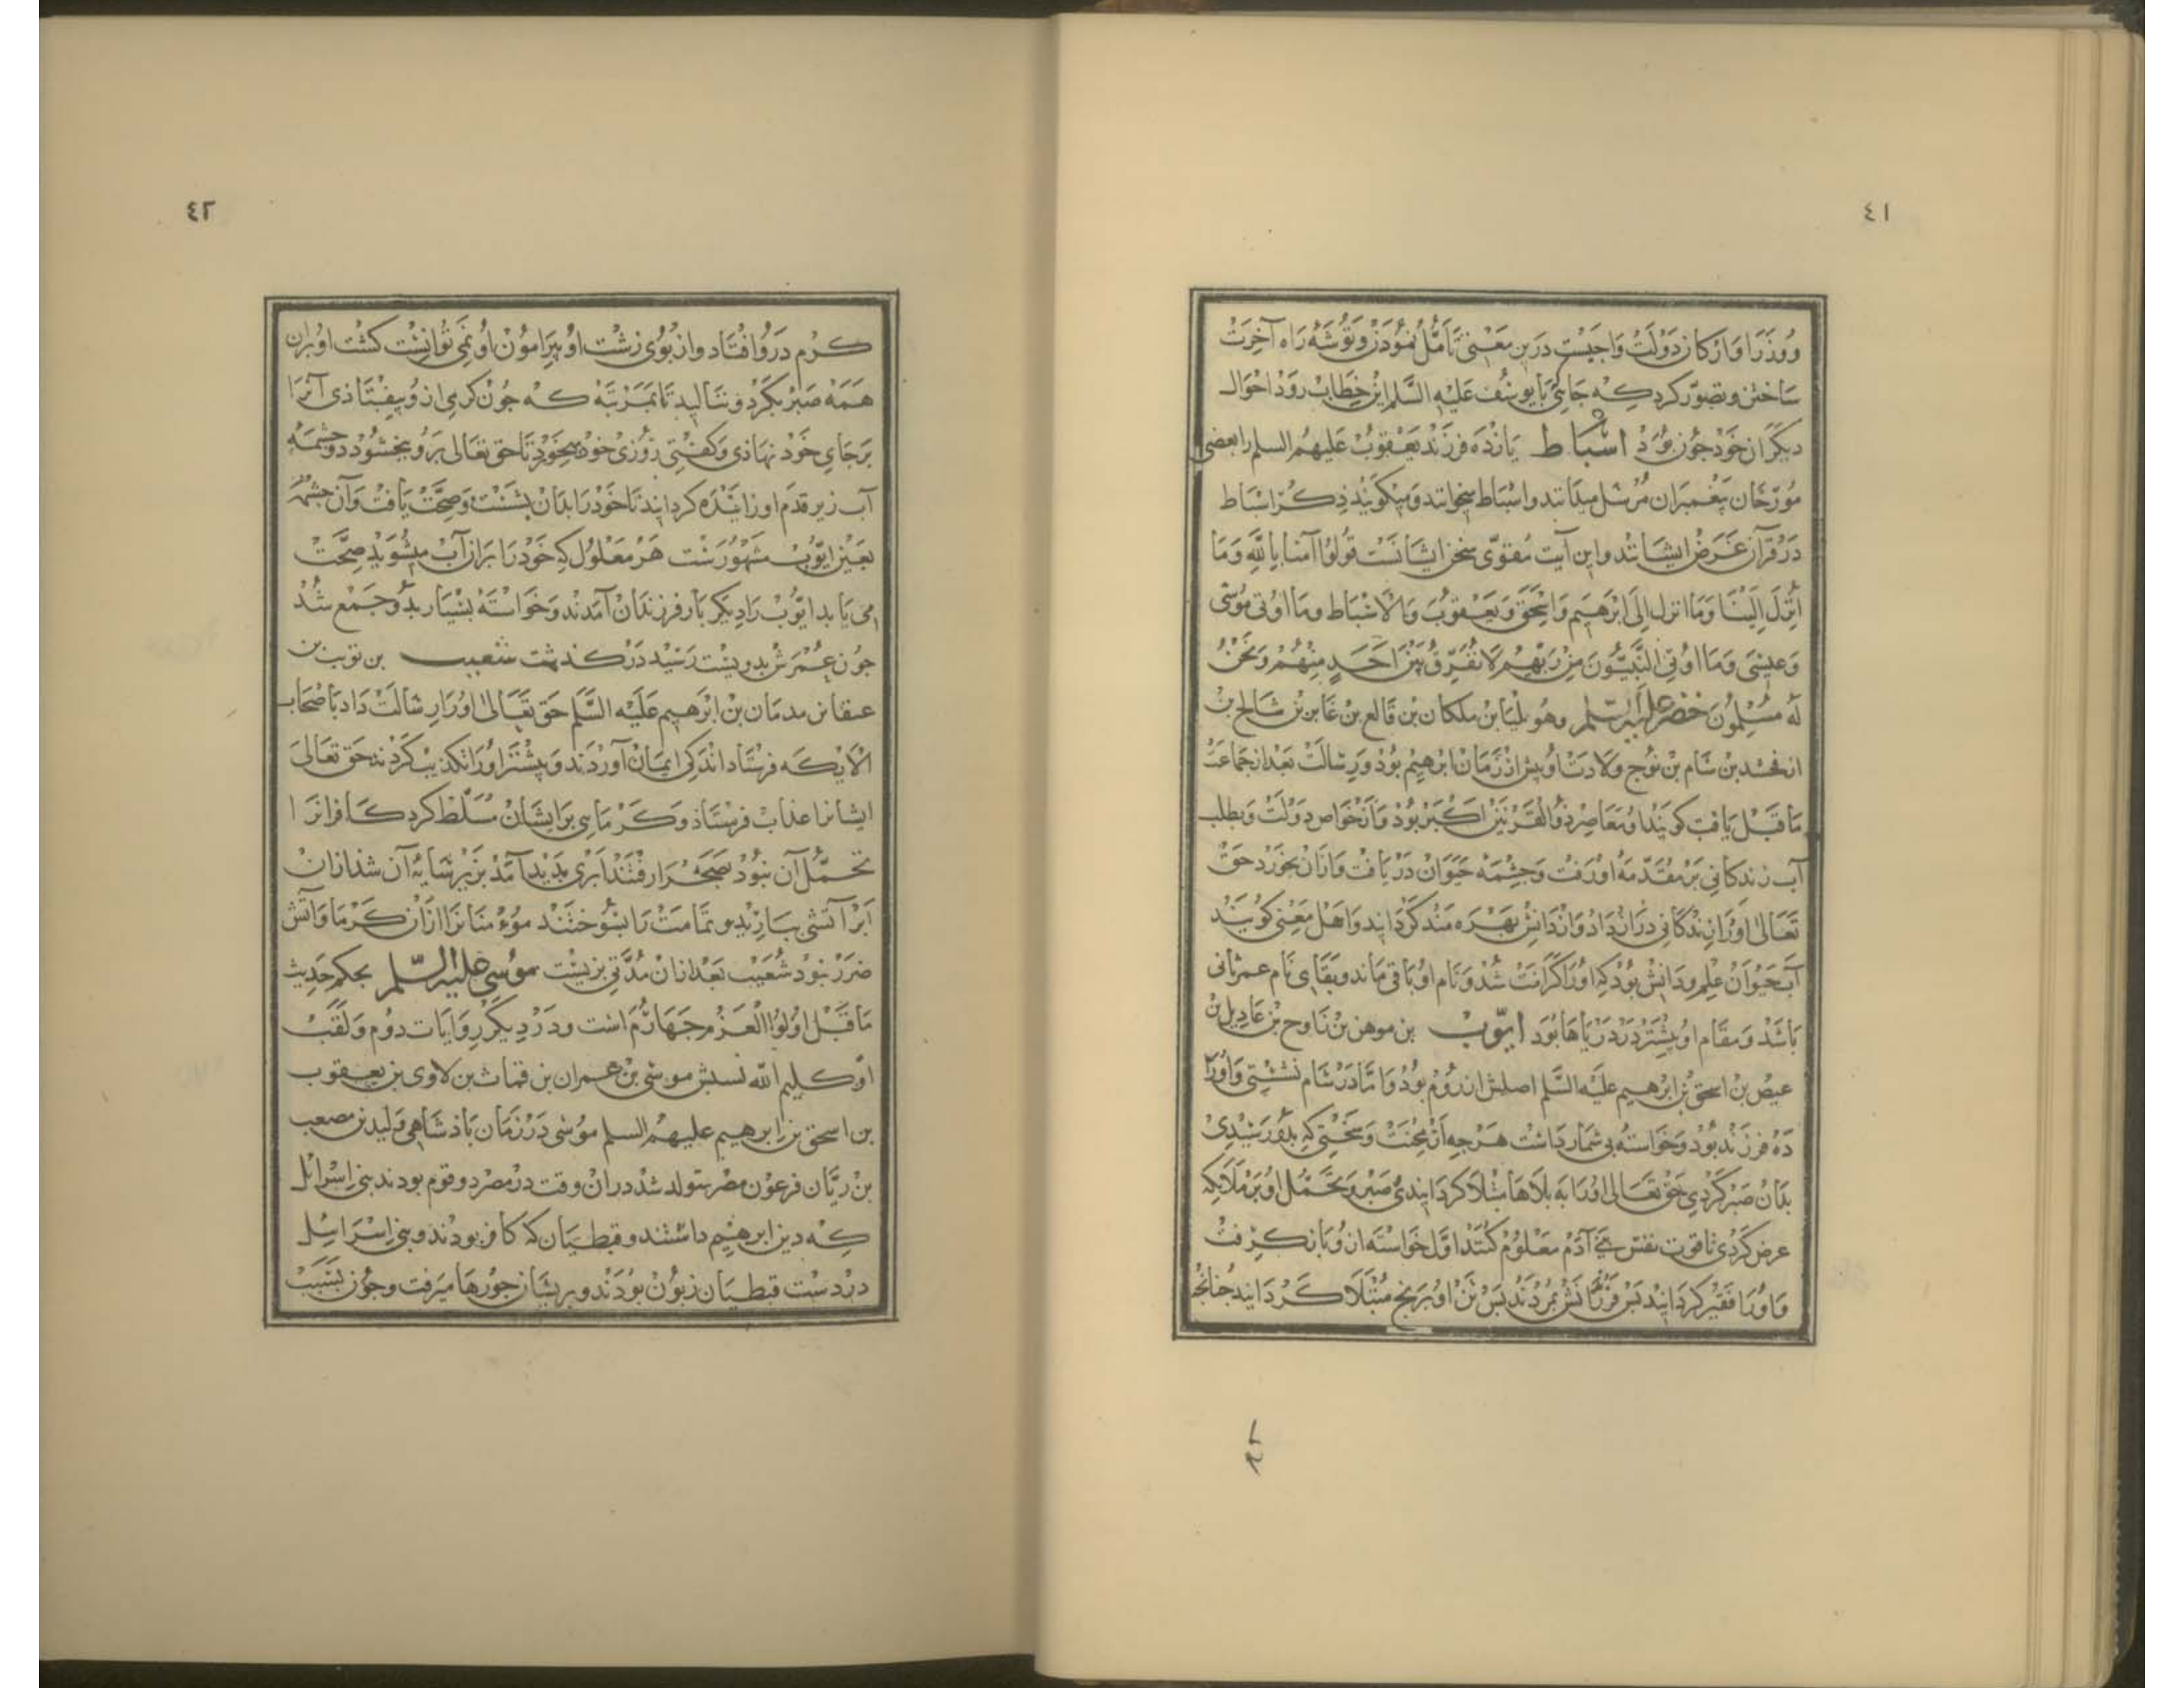 ٤١
ووزرا و ارکان دولت واجبست درین معنی تأمل نمودن و توشه راه آخرت
ساختن و تصوّر کرد که جائی با یوسف علیه السلم این خطاب رود احوال
دیکران خود جون بود اسباط یازده فرزند یعقوب علیهم السلم را بعضی
مورّخان پیغمبران مرسل میدانند و اسباط میخوانند و میکویند ذکر اسباط
در قرآن غرض ایشانند و این آیت مقوّی سخن ایشانست قولوا آمنا بالله وما
انزل الینا وما انزل الی ابرهیم واسحق ویعقوب والاسباط وما اوتی موسی
وعیسی وما اوتی النبیّون من ربهم لا نفرّق بین احد منهم ونحن
له مسلمون خضر علیه السلم وهو بلیا بن ملکان بن فالع بن غابر بن شالح بن
ارفخشد بن سام بن نوح ولادت او پیش از زمان ابرهیم بود و رسالت بعد از جماعت
ما قبل یافت کویند او معاصر ذو القرنین اکبر بود و از خواص دولت و بطلب
آب زندکانی بر مقدّمه او رفت و جشمه حیوان دریافت و ازان بخورد حق
تعالی او را زندکانی دراز داد و از دانش بهره مند کردانید و اهل معنی کویند
آب حیوان علم و دانش بود که او را کرامت شد و نام او باقی ماند و بقای نام عمر ثانی
باشد و مقام او بیشتر در دریاها بود ایّوب بن موهن بن ناوح بن عادیل بن
عیص بن اسحق بن ابرهیم علیه السلم اصلش از روم بود و اما در شام نشستی و او را
ده فرزند بود و خواسته بی شمار داشت هرجه از محنت و سختی که بدو رسیدی
بدان صبر کردی حق تعالی او را به بلاها مبتلا کردانیدی صبر و تحمّل او بر ملائکه
عرض کردی تا قوت نفس بنی آدم معلوم کنند اول خواسته از و بازکرفت
و او را فقیر کردانید پس فرزندانش بمردند پس تن او برنج مبتلا کردانید جنانجه
٤٢
کرم در و افتاد و از بوی زشت او پیرامون او نمی توانست کشت او بران
همه صبر بکرد و ننالید تا بمرتبه که جون کرمی از و بیفتادی آنرا
بر جای خود نهادی و کفتی روزی خود میخور تا حق تعالی برو ببخشود دو جشمه
آب زیر قدم او زاینده کردانید تا خود را بدان بشست و صحّت یافت و آن جشمه
بعین ایّوب مشهورست هر معلول که خود را بران آب میشوید صحّت
می یابد ایّوب را دیکر بار فرزندان آمدند و خواسته بسیار بدو جمع شد
جون عمرش بدویست رسید درکذشت شعیب بن نویب بن
عنقا بن مدیان بن ابرهیم علیه السلم حق تعالی او را رسالت داد باصحاب
الایکه فرستاد اندکی ایمان آوردند و بیشتر او را تکذیب کردند حق تعالی
ایشانرا عذاب فرستاذ و کرمایی بر ایشان مسلّط کرد کافرانرا
تحمّل آن نبود بصحرا رفتند ابری پدید آمد بزیر سایه آن شدند ازان
ابر آتشی ببارید و تمامت را بسوختند مؤمنانرا ازان کرما و آتش
ضرر نبود شعیب بعد ازان مدّتی بزیست موسی علیه السّلم بحکم حدیث
ما قبل اولوا العزم جهارم است و در دیکر روایات دوم و لقب
او کلیم الله نسبش موسی بن عمران بن قهاث بن لاوی بن یعقوب
بن اسحق بن ابرهیم علیهم السلم موسی در زمان پاذشاهی ولید بن مصعب
بن ریّان فرعون مصر متولد شد دران وقت در مصر دو قوم بودند بنی اسرائل
که دین ابرهیم داشتند و قبطیان که کافر بودند و بنی اسرائیل
در دست قبطیان زبون بودند و بریشان جورها میرفت و جون بسبب